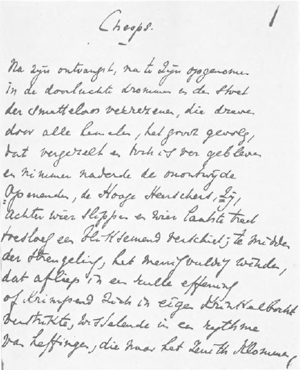 Cheops. 1
Na zijn ontvangst, na te zijn opgenomen
in de doorluchte drommen en den stoet
der smetteloos verrezenen, die dreven
door alle hemelen, het groot gevolg,
dat vergezelt en toch is ver gebleven
en nimmer naderde de
Openenden, de Hooge Heerschers, zij,
achter wier slippen en wier laatste tred
toesloeg een bliksemend verschiet, te midden
der strengeling, het menigvuldig winden,
dat afliep in een nulle effening
of krimpend zich in eigen krinkelbocht
verstrikte, wisselende in een rhythme
van heffingen, die naar het Zenith klommen,